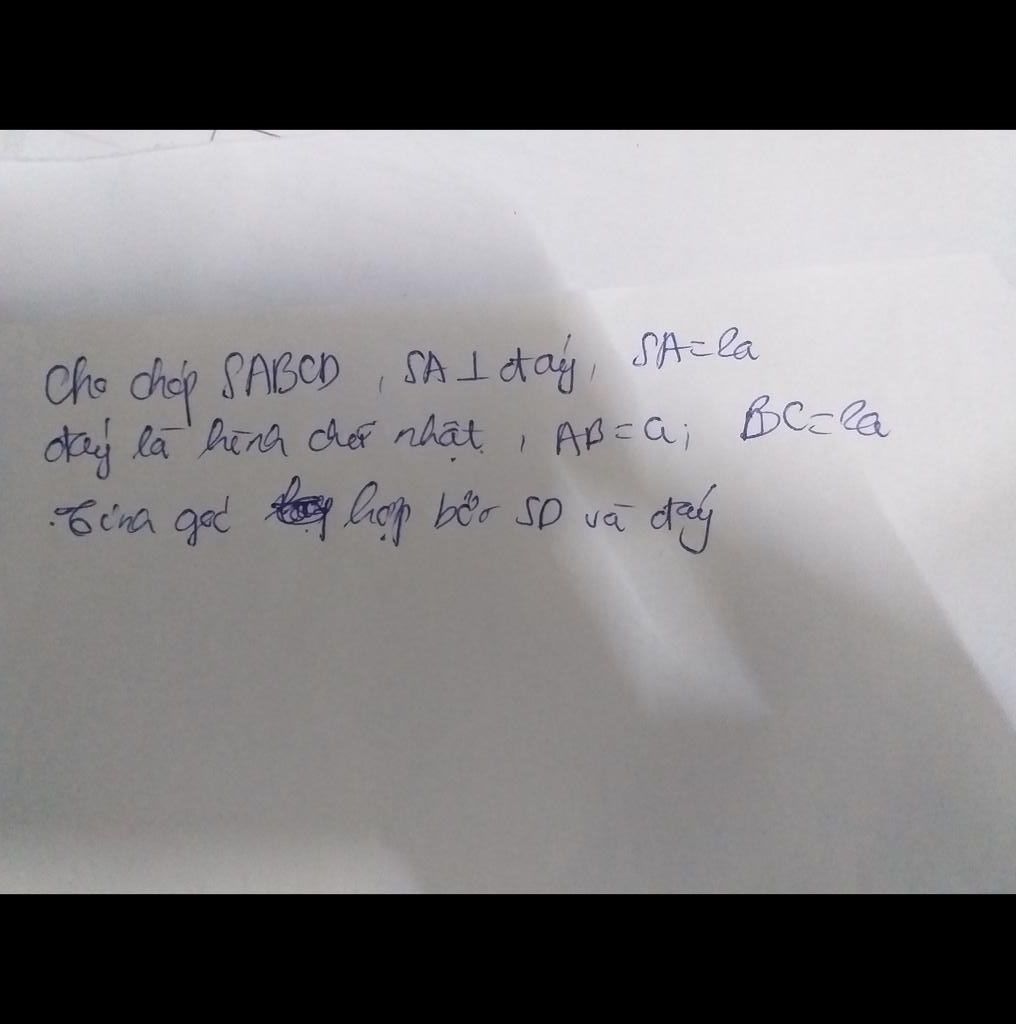 Cho chóp SABCD, SA ⊥ đáy, SA = 2a
đáy là hình chữ nhật, AB = a; BC = 2a
. Tính góc hợp bởi SD và đáy